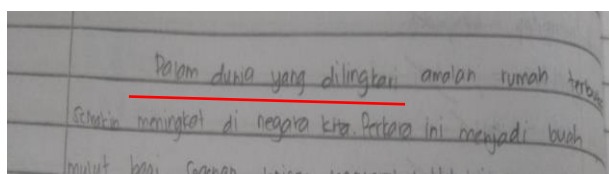 Dalam dunia yang dilingkari amalan rumah terbuka
semakin meningkat di negara kita. Perkara ini menjadi buah
mulut bagi